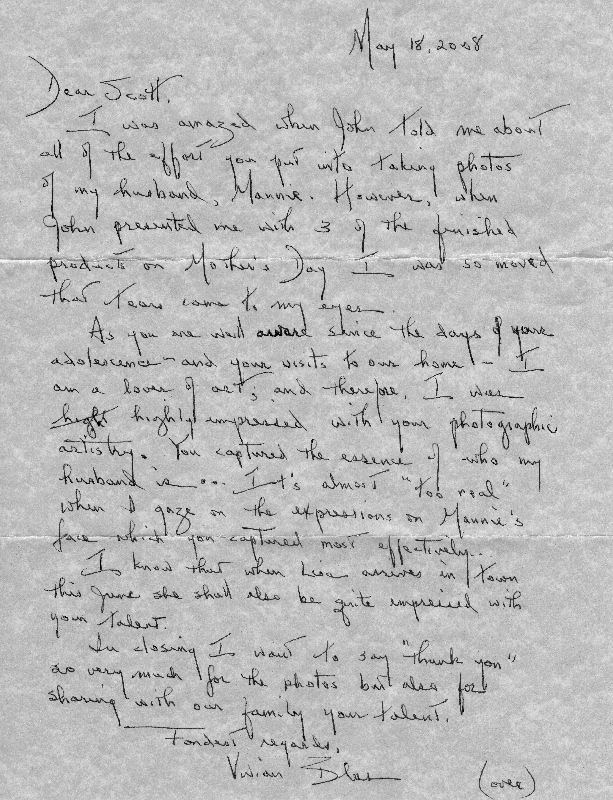 May 18, 2008
Dear Scott,
I was amazed when John told me about
all of the effort you put into taking photos
of my husband, Mannie. However, when
John presented me with 3 of the finished
products on Mother's Day I was so moved
that tears came to my eyes.
As you are well aware since the days of your
adolescence - and your visits to our home - I
am a lover of art, and therefore, I was
highly impressed with your photographic
artistry. You captured the essence of who my
husband is ... It's almost "too real"
when I gaze on the expressions on Mannie's
face which you captured most effectively...
I know that when Lisa arrives in town
this June she shall also be quite impressed with
your talent.
In closing I want to say "thank you"
so very much for the photos but also for
sharing with our family your talent.
Fondest regards,
Vivian
(over)